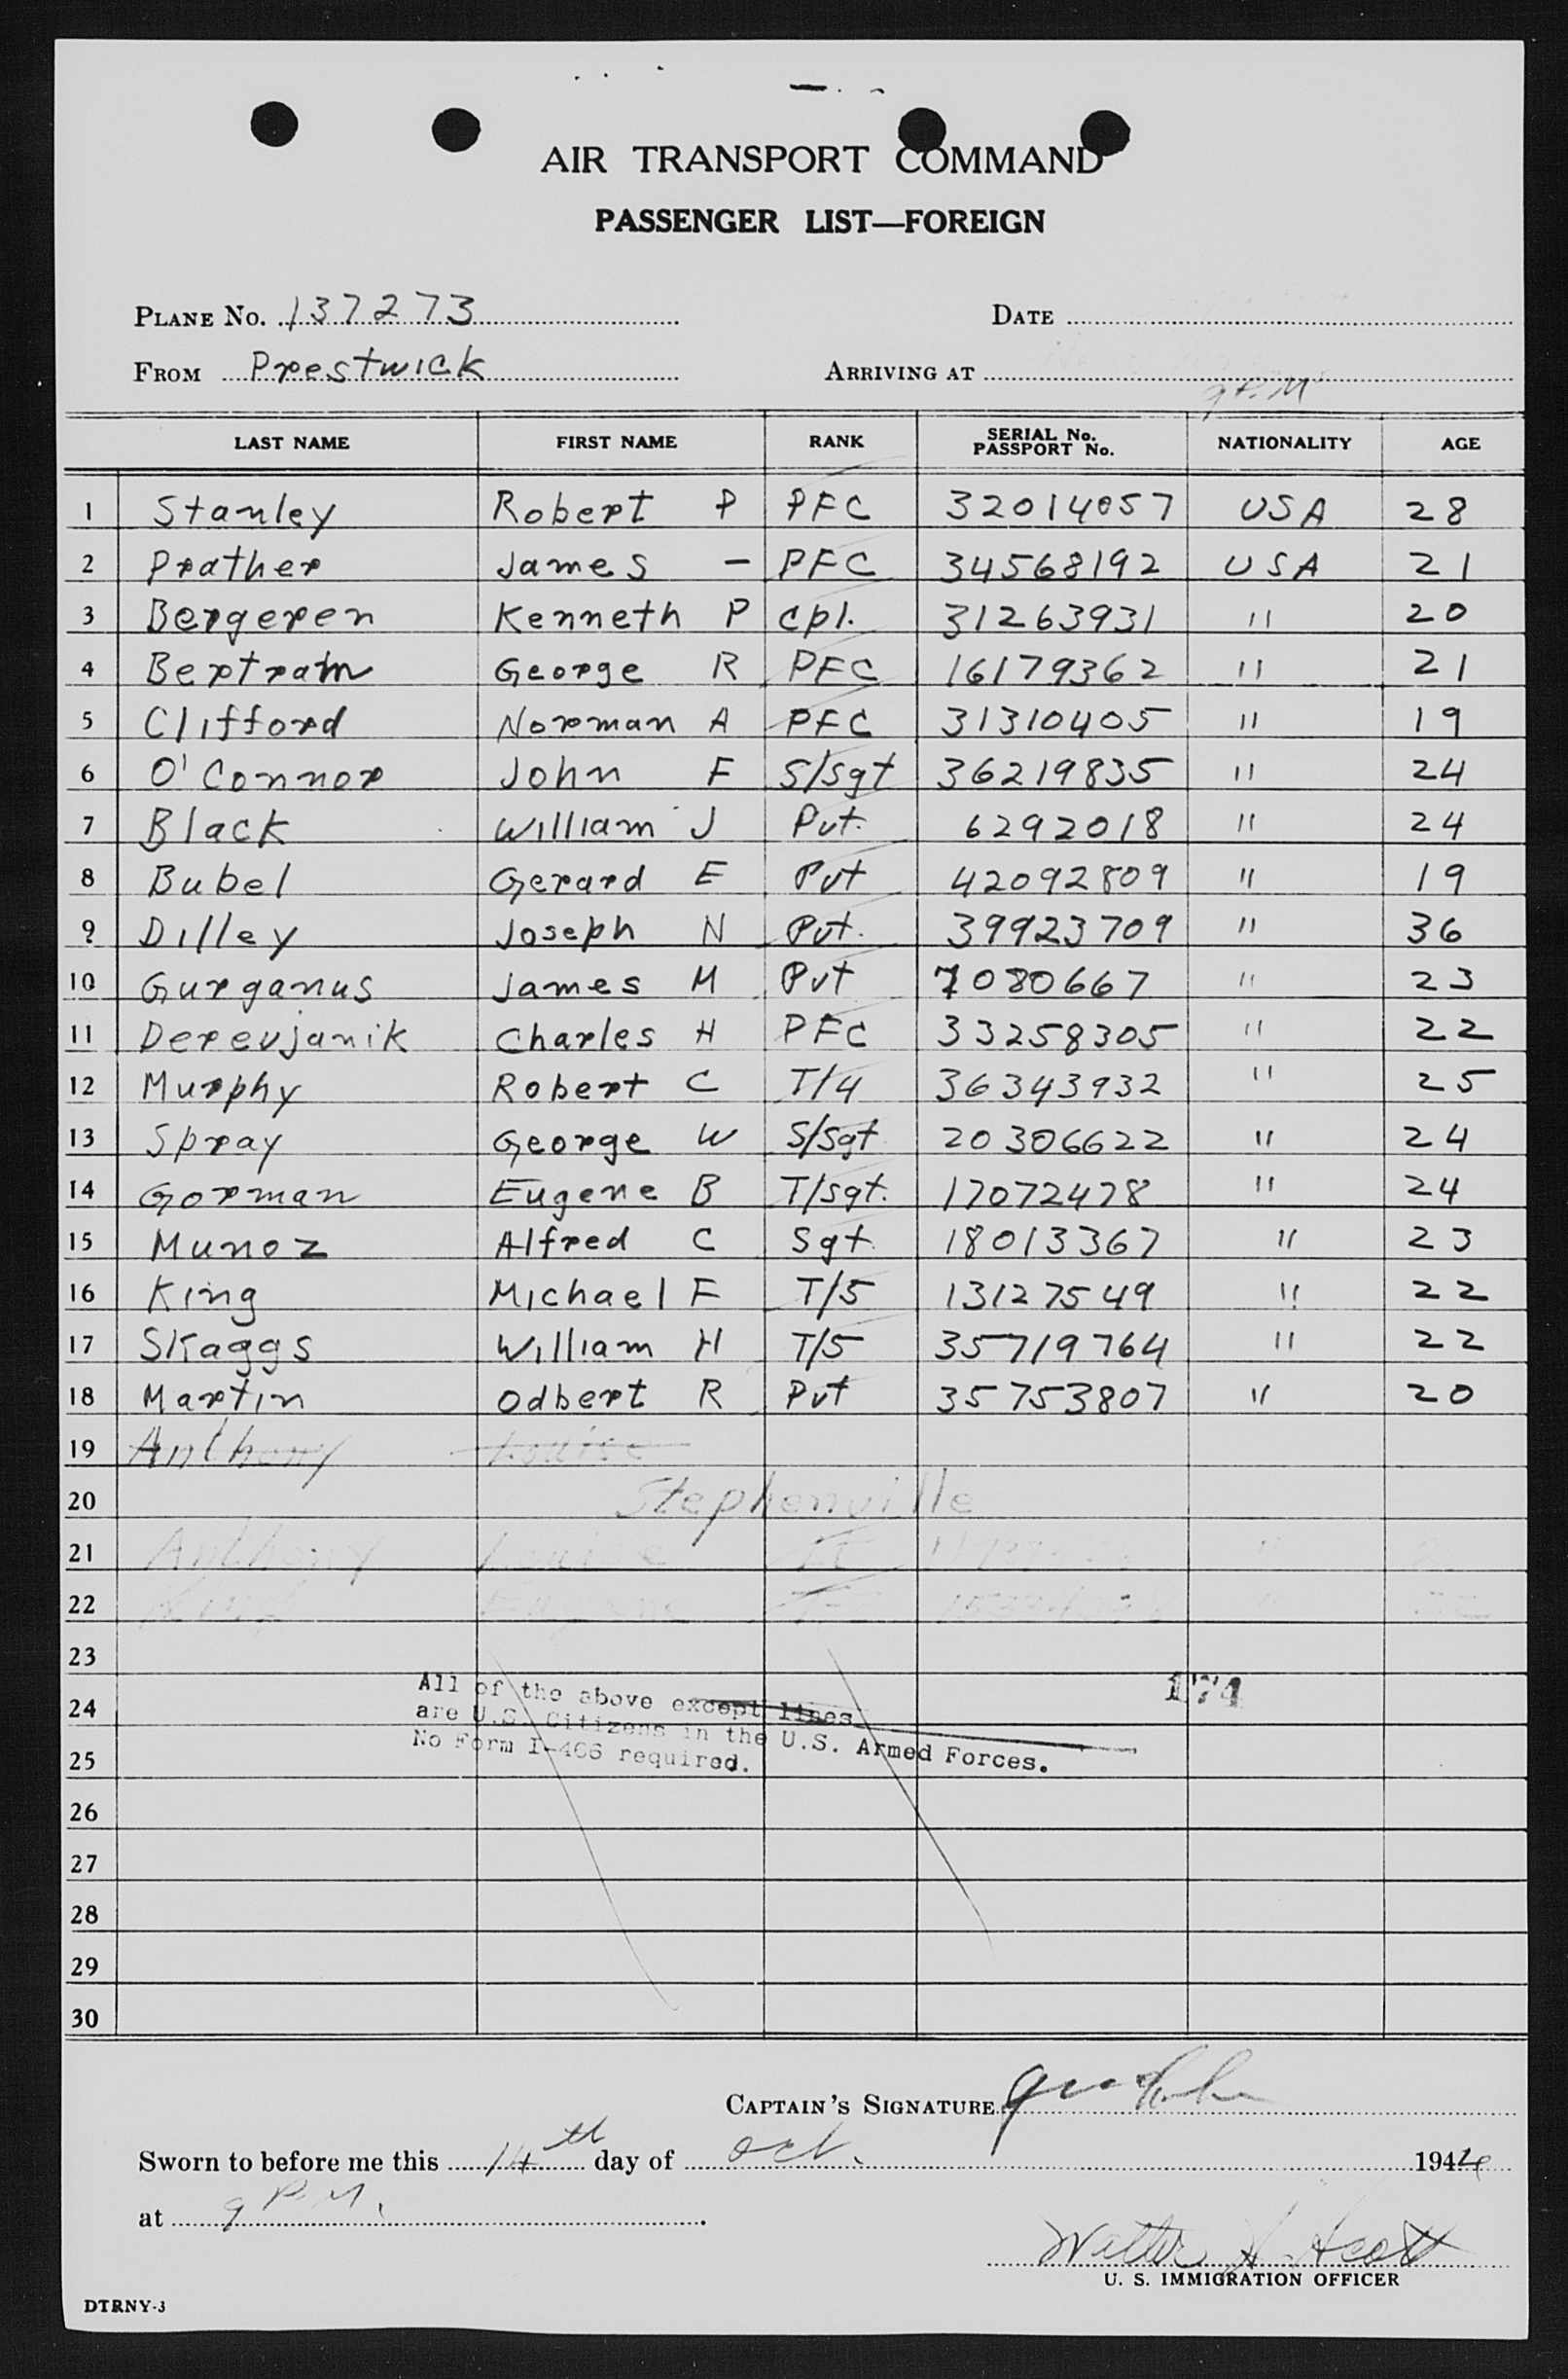 AIR TRANSPORT COMMAND
PASSENGER LIST—FOREIGN
PLANE No. 137273 DATE
FROM Prestwick ARRIVING AT
9 P.M
LAST NAME FIRST NAME RANK SERIAL No. PASSPORT No. NATIONALITY AGE
1 Stanley Robert P PFC 32014057 USA 28
2 Prather James - PFC 34568192 USA 21
3 Bergeren Kenneth P Cpl. 31263931 " 20
4 Bertram George R PFC 16179362 " 21
5 Clifford Norman A PFC 31310405 " 19
6 O'Connor John F S/Sgt 36219835 " 24
7 Black William J Pvt. 6292018 " 24
8 Bubel Gerard E Pvt 42092809 " 19
9 Dilley Joseph N Pvt. 39923709 " 36
10 Gurganus James M Pvt 7080667 " 23
11 Derevjanik Charles H PFC 33258305 " 22
12 Murphy Robert C T/4 36343932 " 25
13 Spray George W S/Sgt 20306622 " 24
14 Gorman Eugene B T/Sgt. 17072478 " 24
15 Munoz Alfred C Sgt. 18013367 " 23
16 King Michael F T/5 13127549 " 22
17 Skaggs William H T/5 35719764 " 22
18 Martin Odbert R Pvt 35753807 " 20
19 Anthony Louise
20 Stephenville
21 Anthony Louise
22
23
24
25
All of the above except lines
are U.S. Citizens in the U.S. Armed Forces.
No Form I-466 required.
174
26
27
28
29
30
CAPTAIN'S SIGNATURE
Sworn to before me this 14th day of Oct. 1944
at 9 P.M.
Walter H. Scott
U. S. IMMIGRATION OFFICER
DTRNY-3